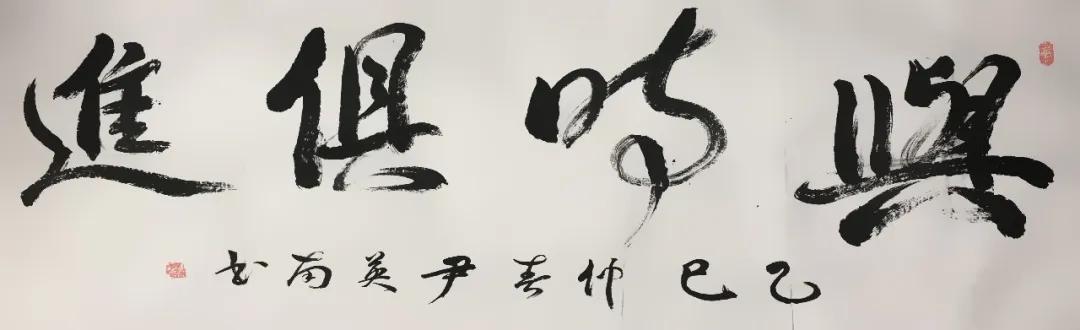 與時俱進
乙巳仲春尹英南书